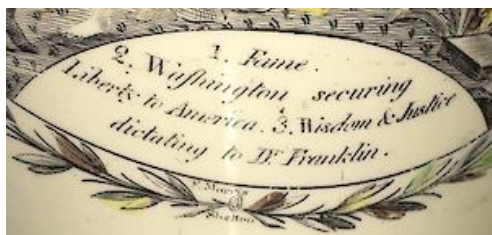 1. Fame.
2. Washington securing
Liberty to America. 3. Wisdom & Justice
dictating to Dr Franklin.
F. Morris
Shelton